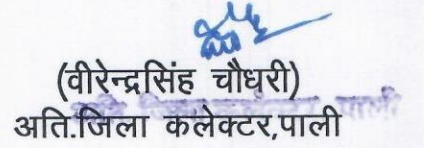 (वीरेन्द्रसिंह चौधरी)
अति.जिला कलेक्टर,पाली